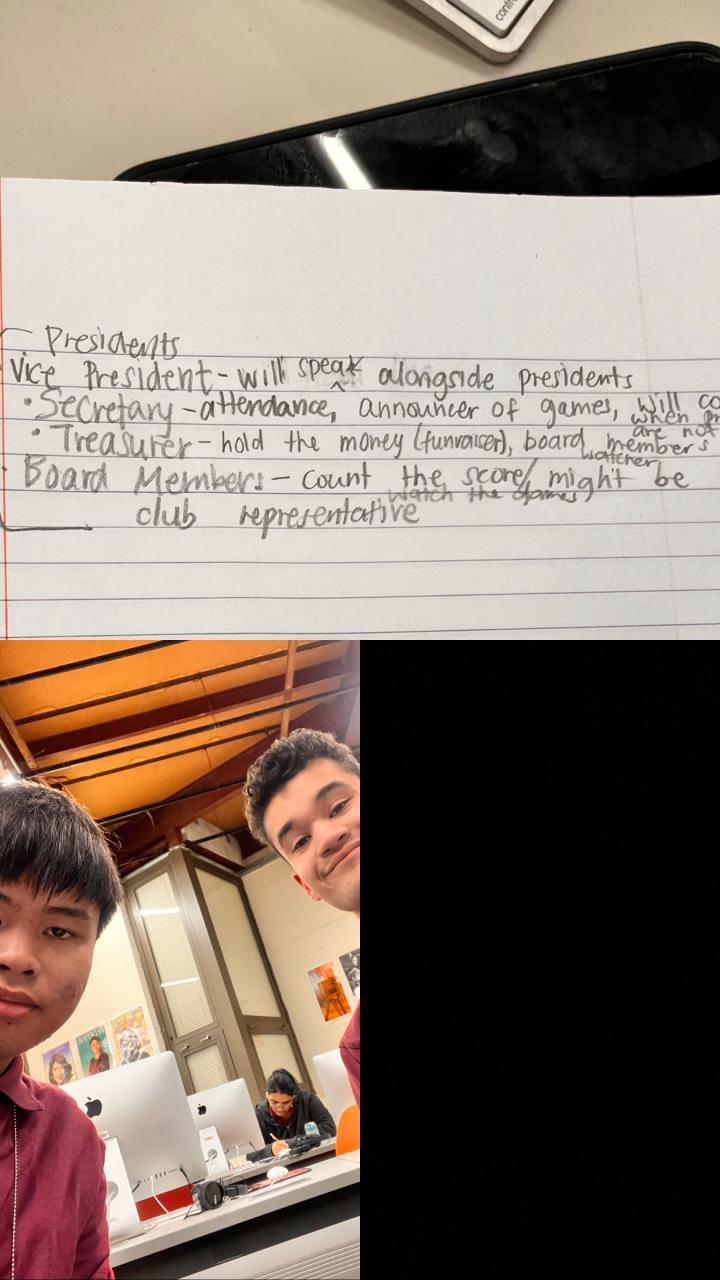 contr
Presidents
Vice President - will speak alongside presidents
• Secretary - attendance, announcer of games, will co
when pr
are not
• Treasurer - hold the money (funraiser), board members
watcher
Board Members - count the score/ might be
watch the games
club representative